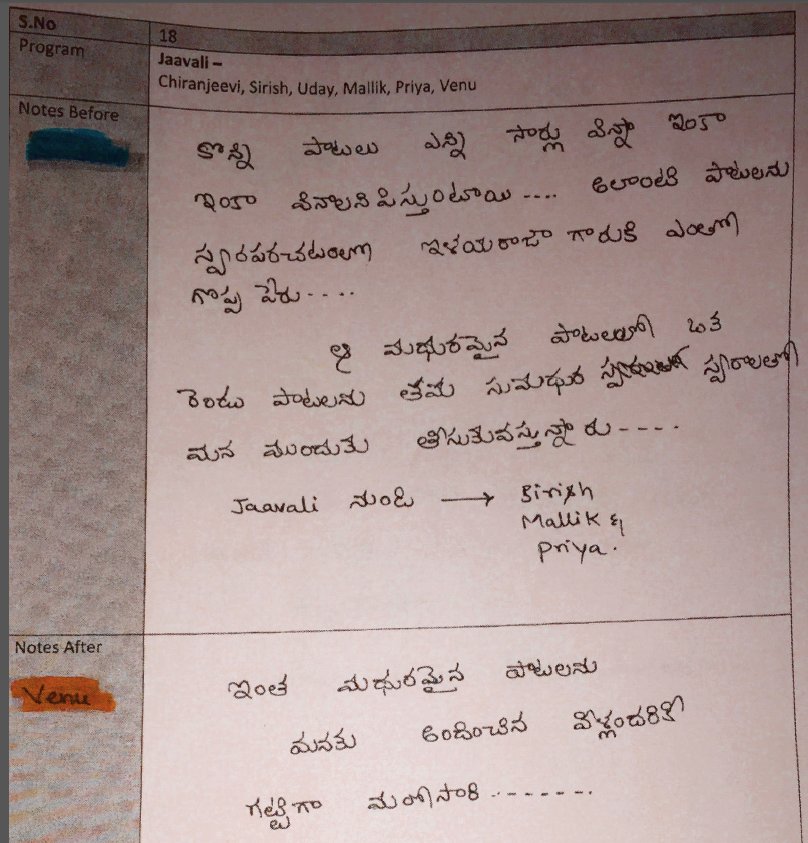 S.No
18
Program
Jaavali –
Chiranjeevi, Sirish, Uday, Mallik, Priya, Venu
Notes Before
కొన్ని పాటలు ఎన్ని సార్లు విన్నా ఇంకా
ఇంకా వినాలనిపిస్తుంటాయి .... అలాంటి పాటలను
స్వరపరచటంలో ఇళయరాజా గారుకి ఎంతో
గొప్ప పేరు ....
ఆ మధురమైన పాటలలో ఒక
రెండు పాటలను తమ సుమధుర స్వరాలతో
మన ముందుకు తీసుకువస్తున్నారు ----.
Jaavali నుండి → Sirish
Mallik &
Priya.
Notes After
Venu
ఇంత మధురమైన పాటలను
మనకు అందించిన వాళ్లందరికీ
గట్టిగా మరోసారి --------.